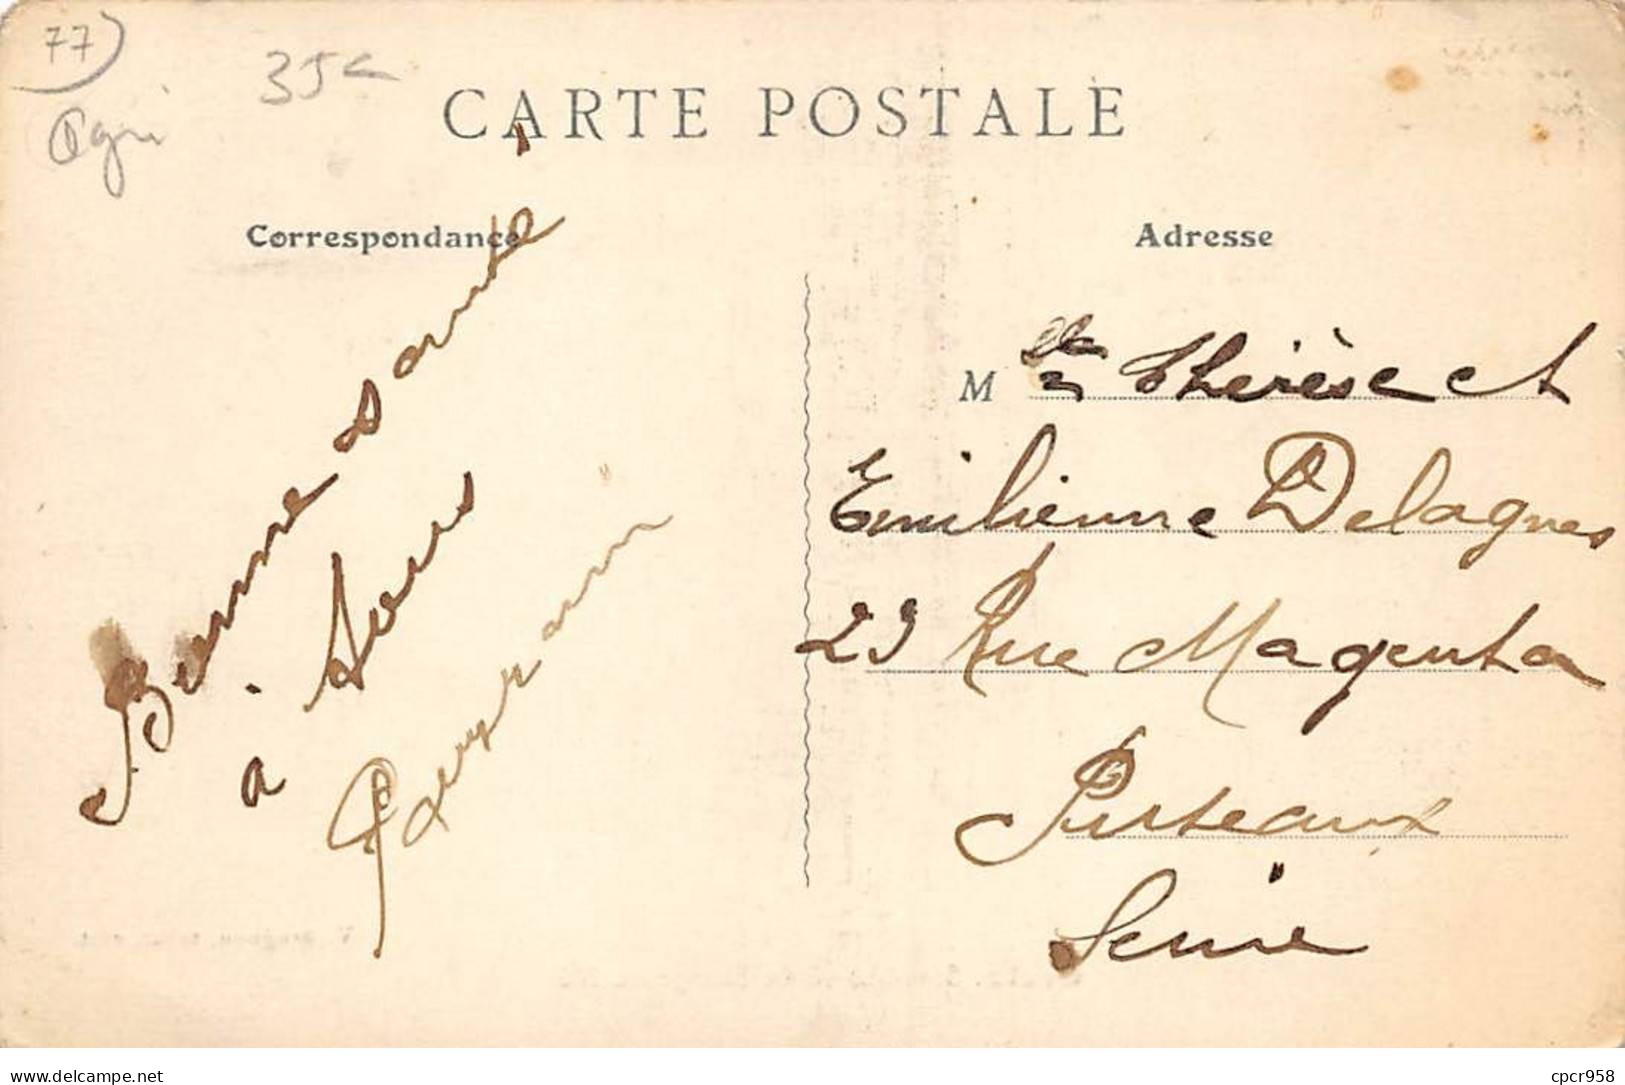 77
35c
CARTE POSTALE
Correspondance
Bonne santé
à tous
Adresse
M lles Thérèse et
Emilienne Delagnes
23 Rue Magenta
Puteaux
Seine
delcampe.net
cpcr958